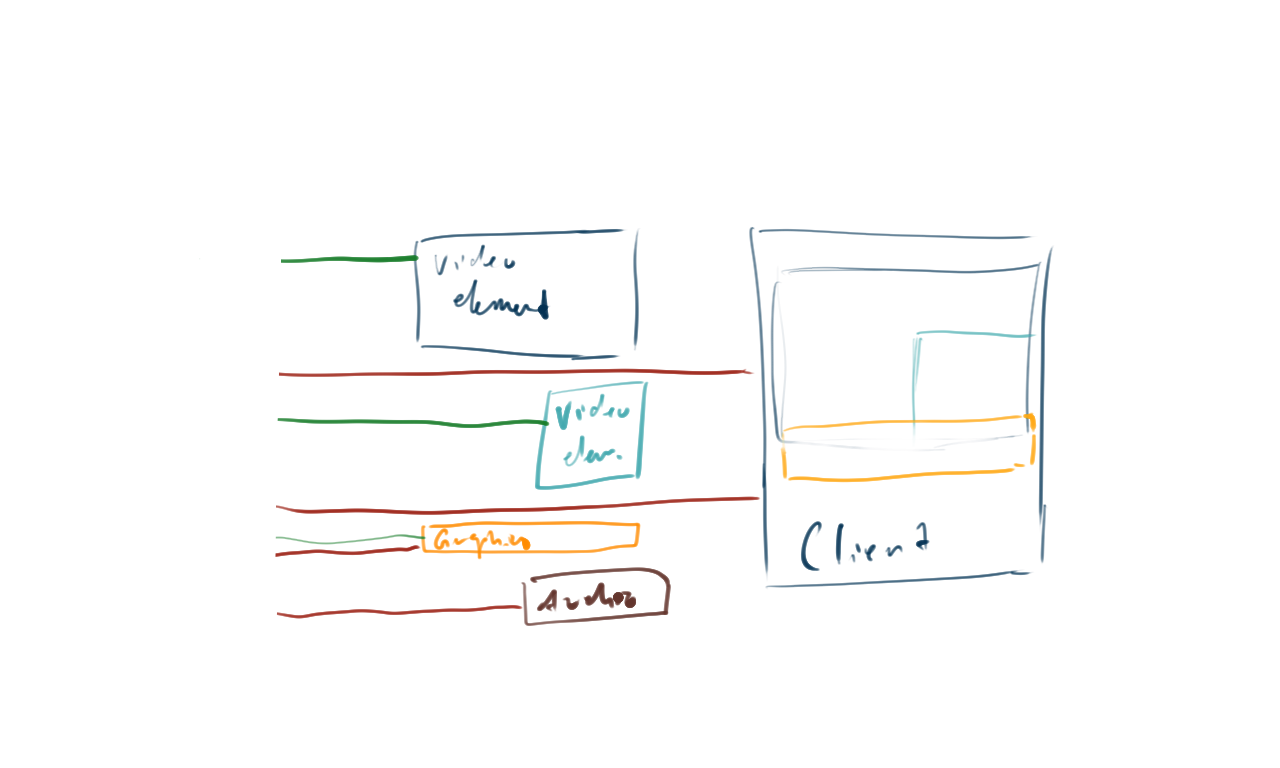 Video
element
Video
elem.
Graphics
Audio
Client